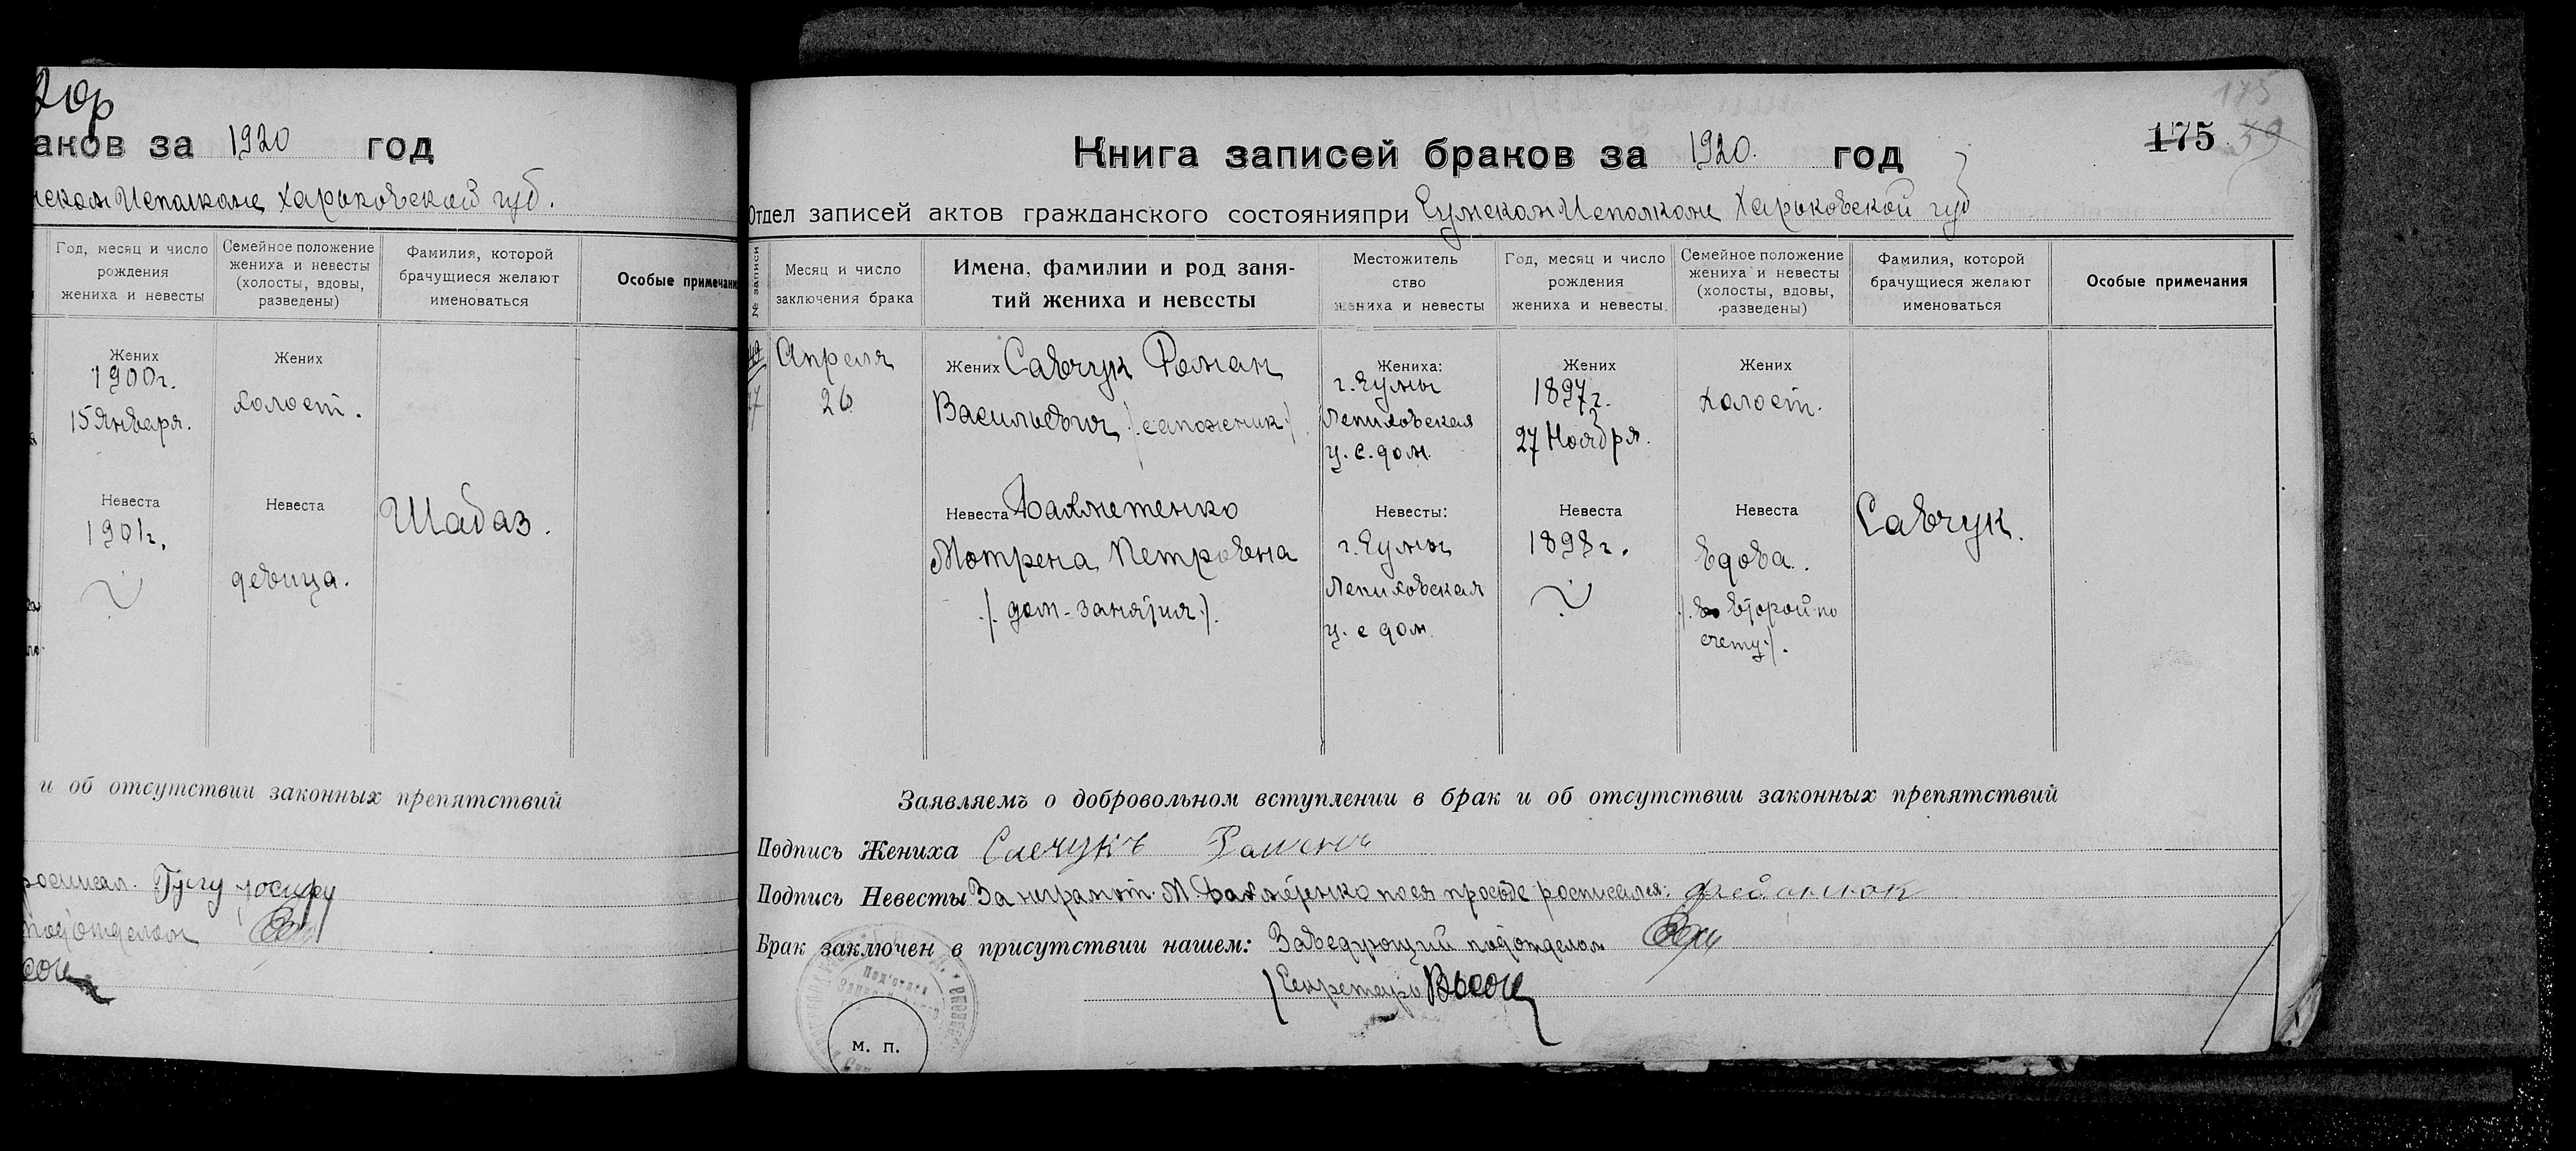 аков за 1920 год
Исполкоме Харьковской губ.
Год, месяц и число рождения жениха и невесты
Семейное положение жениха и невесты (холосты, вдовы, разведены)
Фамилия, которой брачущиеся желают именоваться
Особые примечани
Жених
1900 г.
15 Января.
Жених
холост.
Невеста
1901 г.
Невеста
девица.
Шабаз.
и об отсутствии законных препятствий
175
175
59
Книга записей браков за 1920. год
Отдел записей актов гражданского состояния при Сумском Исполкоме Харьковской губ
№ записи
Месяц и число
заключения брака
Имена, фамилии и род заня-
тий жениха и невесты
Местожитель
ство
жениха и невесты
Год, месяц и число
рождения
жениха и невесты.
Семейное положение
жениха и невесты
(холосты, вдовы,
разведены)
Фамилия, которой
брачущиеся желают
именоваться
Особые примечания
Апреля
26
Жених Савчук Роман
Васильевич /.сапожник./
Жениха:
г. Сумы
Лепиховская
ц. с. дом.
Жених
1897 г.
27 Ноября.
Жених
холост.
Невеста Бахметенко
Мотрена Петровена
/. дом-занятия./.
Невесты:
г. Сумы
Лепиховская
ц. с дом.
Невеста
1898 г.
Невеста
вдова.
/. второй по
счету./.
Савчук.
Заявляемъ о добровольном вступлении в брак и об отсутствии законных препятствий
Подпись Жениха Савчукъ Раманъ
Подпись Невесты За неграмот. М. Бахметенко по ея просьбе росписался:
Брак заключен в присутствии нашем: Заведующий подотделом
Секретарь
м. п.